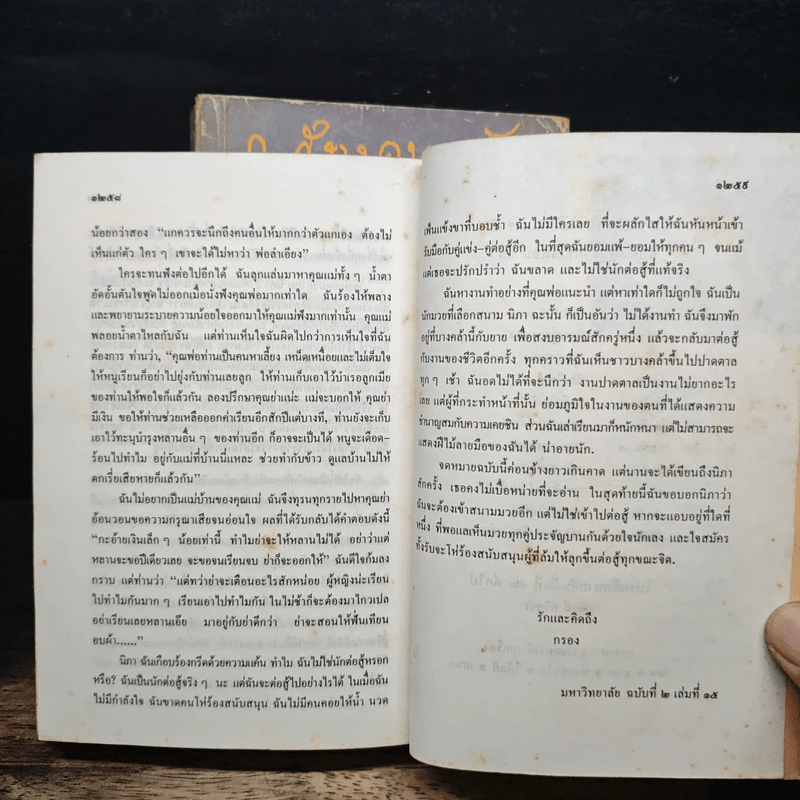 ๑๒๕๘
น้อยกว่าสอง “แกควรจะนึกถึงคนอื่นให้มากกว่าตัวแกเอง ต้องไม่
เห็นแก่ตัว ใคร ๆ เขาจะได้ไม่หาว่า พ่อลำเอียง”
ใครจะทนฟังต่อไปอีกได้ ฉันลุกแล่นมาหาคุณแม่ทั้ง ๆ น้ำตา
อัดอั้นตันใจพูดไม่ออกเมื่อนั่งฟังคุณพ่อมากเท่าใด ฉันร้องไห้พลาง
และพยายามระบายความน้อยใจออกมาให้คุณแม่ฟังมากเท่านั้น แม่
พลอยน้ำตาไหลกับฉัน แต่ท่านเห็นใจฉันผิดไปกว่าการเห็นใจที่ฉัน
ต้องการ ท่านว่า, “คุณพ่อท่านเป็นคนหาเลี้ยง เหน็ดเหนื่อยและ ไม่เต็มใจ
ให้หนูเรียนก็อย่าไปยุ่งกับท่านเลยลูก ให้ท่านเก็บเอาไว้บำเรอลูกเมีย
ของท่านให้พอใจก็แล้วกัน ลองปรึกษาคุณย่าแน่ะ แม่จะบอกให้ คุณย่า
มีเงิน ขอให้ท่านช่วยเหลือออกค่าเรียนอีกสักปีแต่บางที, ท่านยังจะเก็บ
เอาไว้ทะนุบำรุงหลานอื่น ๆ ของท่านอีก ก็อาจจะเป็นได้ หนูจะเดือด-
ร้อนไปทำไม อยู่กับแม่ที่บ้านนี่แหละ ช่วยทำกับข้าว ดูแลบ้านไม่ให้
ตกเรี่ยเสียหายก็แล้วกัน”
ฉันไม่อยากเป็นแม่บ้านของคุณแม่ ฉันจึงทุรนทุรายไปหาคุณย่า
อ้อนวอนขอความกรุณาเสียจนอ่อนใจ ผลที่ได้รับกลับได้คำตอบดังนี้
“กะอ้ายเงินเล็ก ๆ น้อยเท่านี้ ทำไมย่าจะให้หลานไม่ได้ อย่าว่าแต่
หลานจะขอปีเดียวเลย จะขอจนเรียนจบ ย่าก็จะออกให้” ฉันดีใจก้มลง
กราบ แต่ท่านว่า “แตทว่าย่าจะเตือนอะไรสักหน่อย ผู้หญิงน่ะเรียน
ไปทำกันมาก ๆ เรียนเอาไปทำไมกัน ในไม่ช้าก็จะต้องมาไกวเปล
อย่าเรียนเลยหลานเอ๊ย มาอยู่กับย่าดีกว่า ย่าจะสอนให้ฟั่นเทียน
อบผ้า......”
นิภา ฉันเกือบร้องกรีดด้วยความแค้น ทำไม ฉันไม่ใช่นักต่อสู้หรอก
หรือ? ฉันเป็นนักต่อสู้จริง ๆ นะ แต่ฉันจะต่อสู้ไปอย่างไรได้ ในเมื่อฉัน
ไม่มีกำลังใจ ฉันขาดคนโห่ร้องสนับสนุน ฉันไม่มีคนคอยให้น้ำ นวด
๑๒๕๙
เฟ้นแข้งขาที่บอบช้ำ ฉันไม่มีใครเลย ที่จะผลักไสให้ฉันหันหน้าเข้า
รับมือกับคู่แข่ง-คู่ต่อสู้อีก ในที่สุดฉันยอมแพ้-ยอมให้ทุกคน ๆ จนแม้
แต่เธอจะปรักปรำว่า ฉันขลาด และไม่ใช่นักต่อสู้ที่แท้จริง
ฉันหางานทำอย่างที่คุณพ่อแนะนำ แต่หาเท่าใดก็ไม่ถูกใจ ฉันเป็น
นักมวยที่เลือกสนาม นิภา ฉะนั้น ก็เป็นอันว่า ไม่ได้งานทำ ฉันจึงมาพัก
อยู่ที่บางคล้ากับยาย เพื่อสงบอารมณ์สักครู่หนึ่ง แล้วจะกลับมาต่อสู้
กับงานของชีวิตอีกครั้ง ทุกคราวที่ฉันเห็นชาวบางคล้าขึ้นไปปาดตาล
ทุก ๆ เช้า ฉันอดไม่ได้ที่จะนึกว่า งานปาดตาลเป็นงานไม่ยากอะไร
เลย แต่ผู้ที่กระทำหน้าที่นั้น ย่อมภูมิใจในงานของตนที่ได้แสดงความ
ชำนาญสมกับความเคยชิน ส่วนฉันเล่าเรียนมาก็หนักหนา แต่ไม่สามารถจะ
แสดงฝีไม้ลายมือของฉันได้ น่าอายนัก.
จดหมายฉบับนี้ค่อนข้างยาวเกินคาด แต่นานจะได้เขียนถึงนิภา
สักครั้ง เธอคงไม่เบื่อหน่ายที่จะอ่าน ในสุดท้ายนี้ฉันขอบอกนิภาว่า
ฉันจะต้องเข้าสนามมวยอีก แต่ไม่ใช่เข้าไปต่อสู้ หากจะแอบอยู่ที่ใดที่
หนึ่ง ที่พอแลเห็นมวยทุกคู่ประจัญบานกันด้วยใจนักเลง และใจสมัคร
ทั้งรับจะโห่ร้องสนับสนุนผู้ที่ล้มให้ลุกขึ้นต่อสู้ทุกขณะจิต.
รักและคิดถึง
กรอง
มหาวิทยาลัย ฉบับที่ ๒ เล่มที่ ๑๕